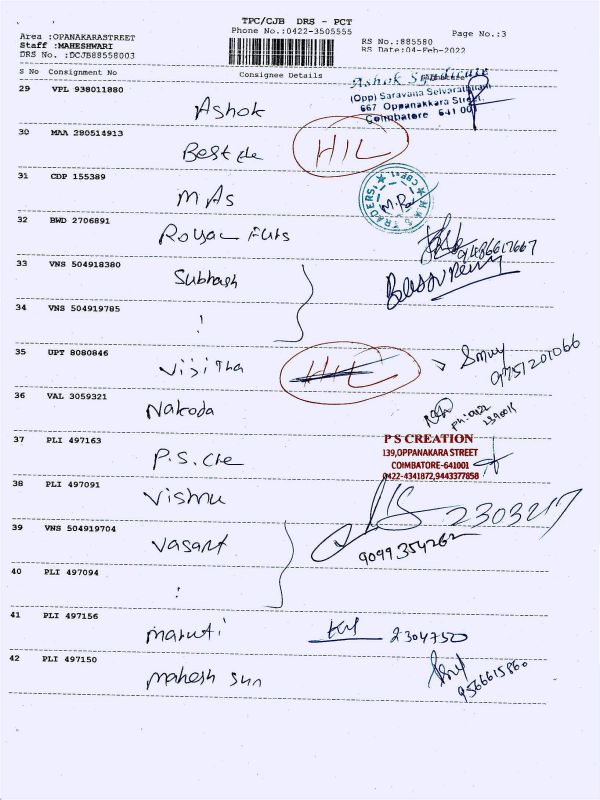 TPC/CJB DRS - PCT
Phone No.:0422-3505555
Page No.:3
Area :OPANAKARASTREET
Staff :MAHESHWARI
DRS No. :DCJB88558003
RS No.:885580
RS Date:04-Feb-2022
S No Consignment No Consignee Details
29 VPL 938011880
Ashok
Ashok Syndicate
(Opp) Saravana Selvarathinam
667 Oppanakkara Street,
Coimbatore - 641 001
30 MAA 280514913
Best
HIL
31 CDP 155389
MAS
MAS TRADERS
CBE-1
32 BWD 2706891
Royal
33 VNS 504918380
Subhash
34 VNS 504919785
35 UPT 8080846
Vijitha
HIL
9751201066
36 VAL 3059321
Nakoda
37 PLI 497163
P.S. Cre
P S CREATION
139,OPPANAKARA STREET
COIMBATORE-641001
0422-4341872,9443377858
38 PLI 497091
Vishnu
2303217
39 VNS 504919704
Vasant
9099354262
40 PLI 497094
41 PLI 497156
maruti
2304750
42 PLI 497150
mahesh sun
9566615860